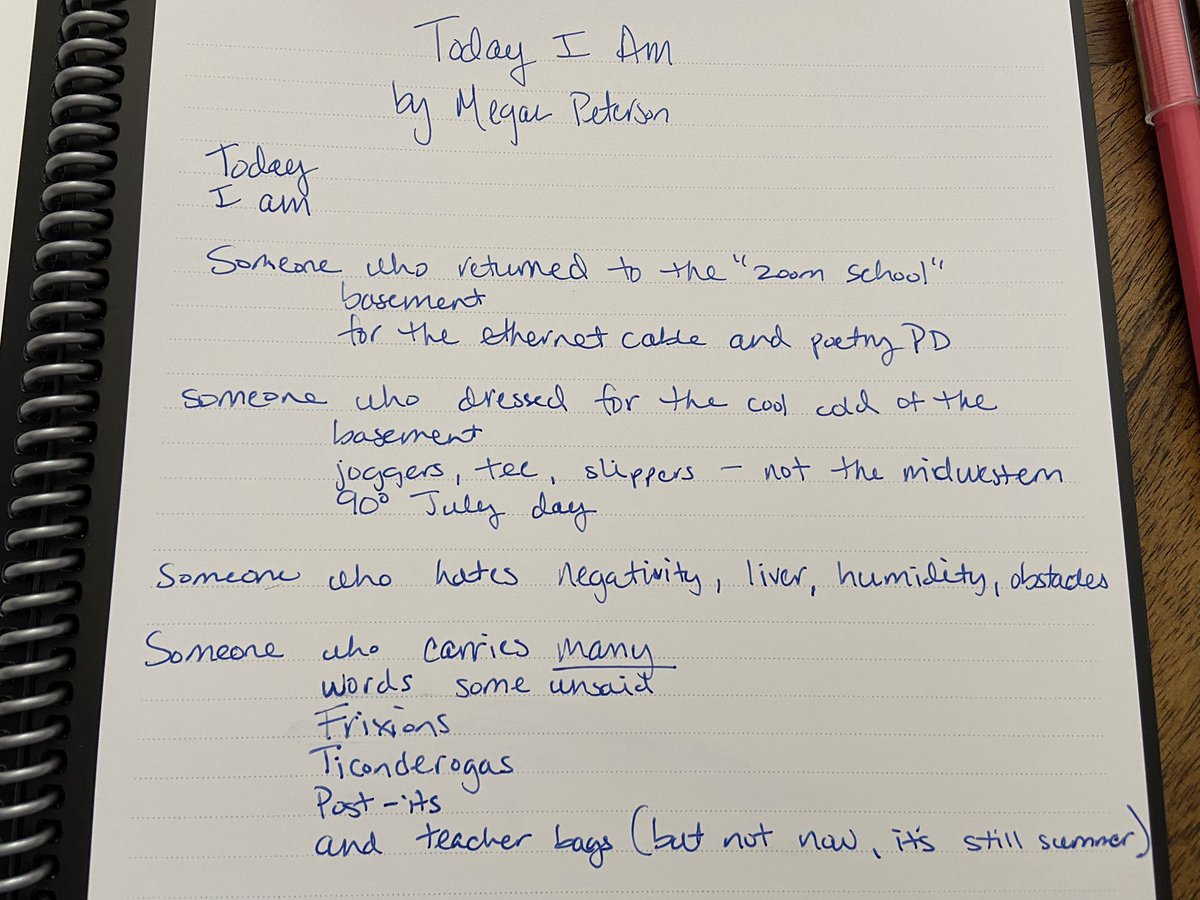 Today I Am
by Megan Peterson
Today
I am
Someone who returned to the "zoom school"
basement
for the ethernet cable and poetry PD
someone who dressed for the cool cold of the
basement
joggers, tee, slippers – not the midwestern
90° July day
Someone who hates negativity, liver, humidity, obstacles
Someone who carries many
words some unsaid
Frixions
Ticonderogas
Post-its
and teacher bags (but not now, it's still summer)